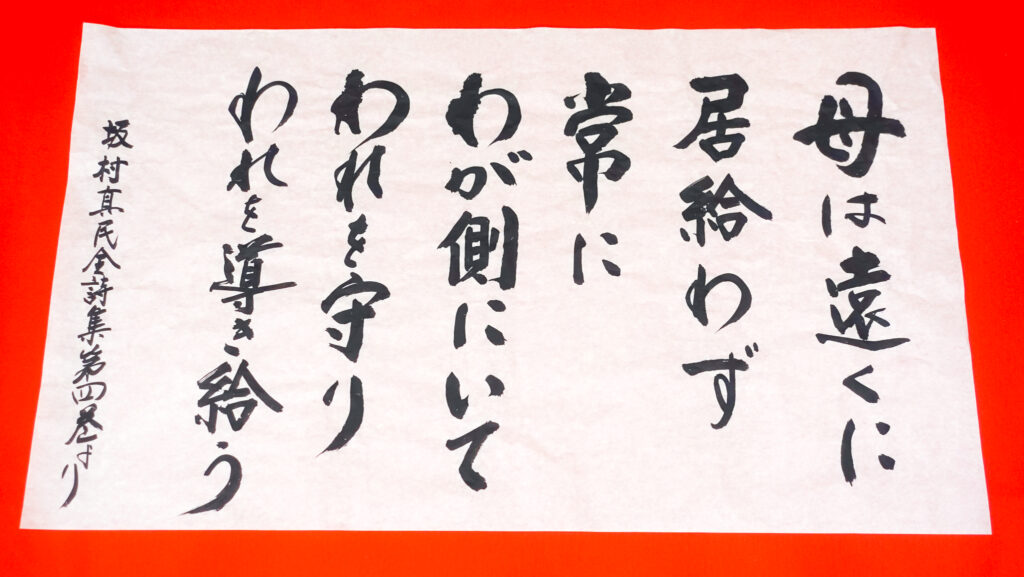 母は遠くに
居給わず
常に
わが側にいて
われを守り
われを導き給う
坂村真民全詩集第四巻より